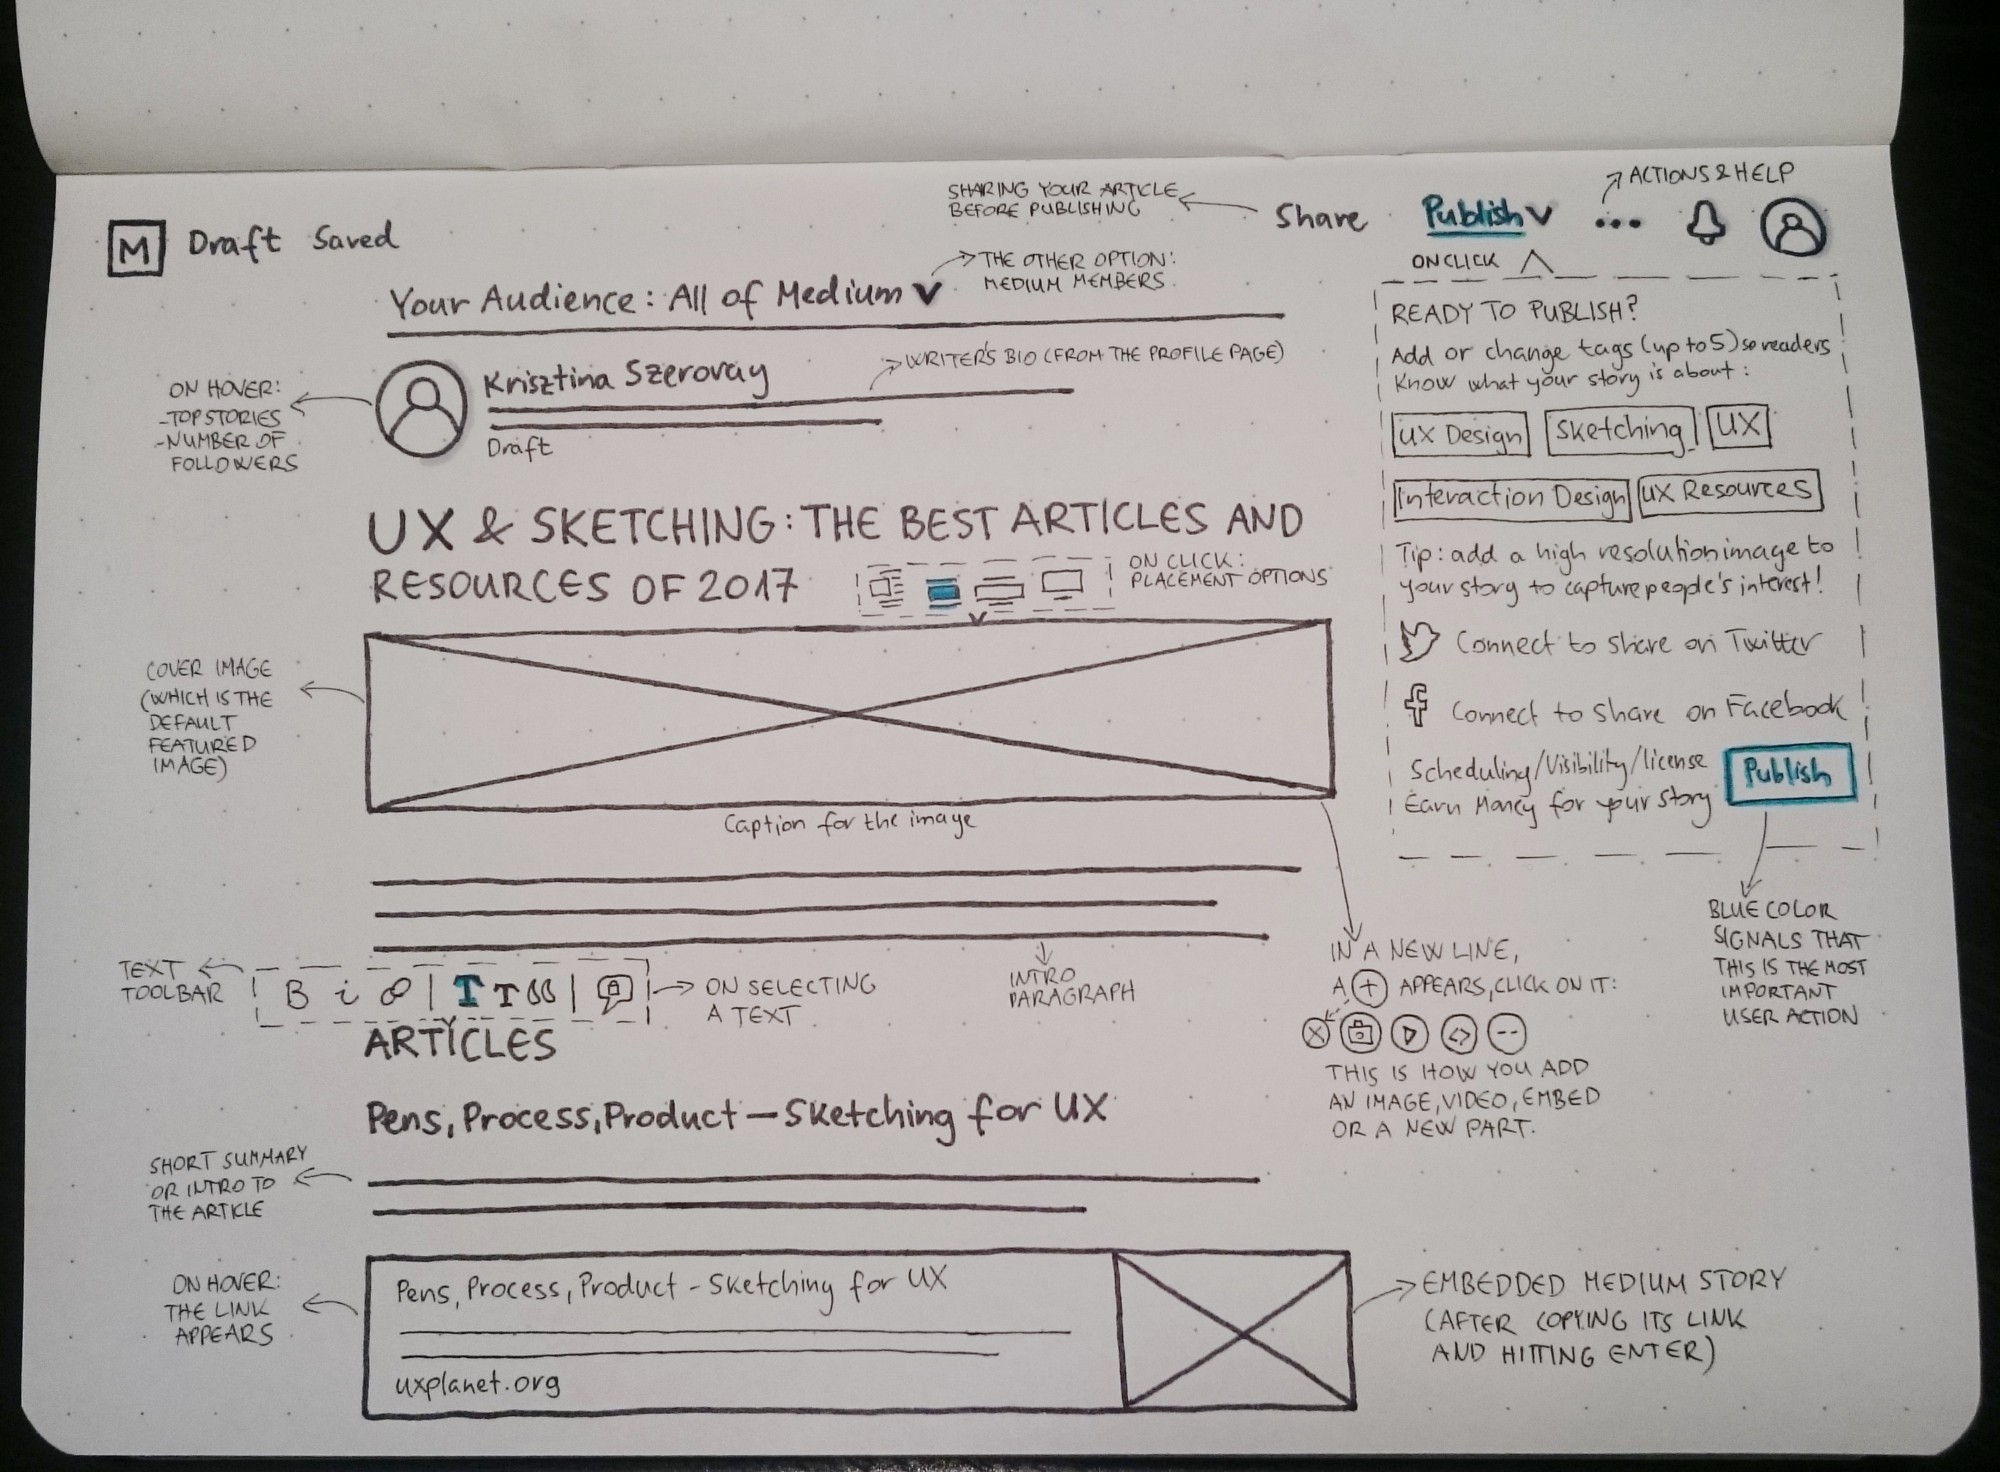 SHARING YOUR ARTICLE
BEFORE PUBLISHING
Share
Publish
ACTIONS & HELP
M
Draft Saved
Your Audience: All of Medium
THE OTHER OPTION:
MEDIUM MEMBERS
ON CLICK
READY TO PUBLISH?
Add or change tags (up to 5) so readers
Know what your story is about:
UX Design
Sketching
UX
Interaction Design
UX Resources
Tip: add a high resolution image to
your story to capture people's interest!
Connect to share on Twitter
f
Connect to share on Facebook
Scheduling/Visibility/license
Earn Money for your story
Publish
BLUE COLOR
SIGNALS THAT
THIS IS THE MOST
IMPORTANT
USER ACTION
ON HOVER:
-TOP STORIES
-NUMBER OF
FOLLOWERS
Krisztina Szerovay
WRITER'S BIO (FROM THE PROFILE PAGE)
Draft
UX & SKETCHING: THE BEST ARTICLES AND
RESOURCES OF 2017
ON CLICK:
PLACEMENT OPTIONS
COVER IMAGE
(WHICH IS THE
DEFAULT
FEATURED
IMAGE)
Caption for the image
TEXT
TOOLBAR
B i T T
ON SELECTING
A TEXT
INTRO
PARAGRAPH
IN A NEW LINE,
A + APPEARS, CLICK ON IT:
THIS IS HOW YOU ADD
AN IMAGE, VIDEO, EMBED
OR A NEW PART.
ARTICLES
Pens, Process, Product – Sketching for UX
SHORT SUMMARY
OR INTRO TO
THE ARTICLE
ON HOVER:
THE LINK
APPEARS
Pens, Process, Product - Sketching for UX
uxplanet.org
EMBEDDED MEDIUM STORY
(AFTER COPYING ITS LINK
AND HITTING ENTER)